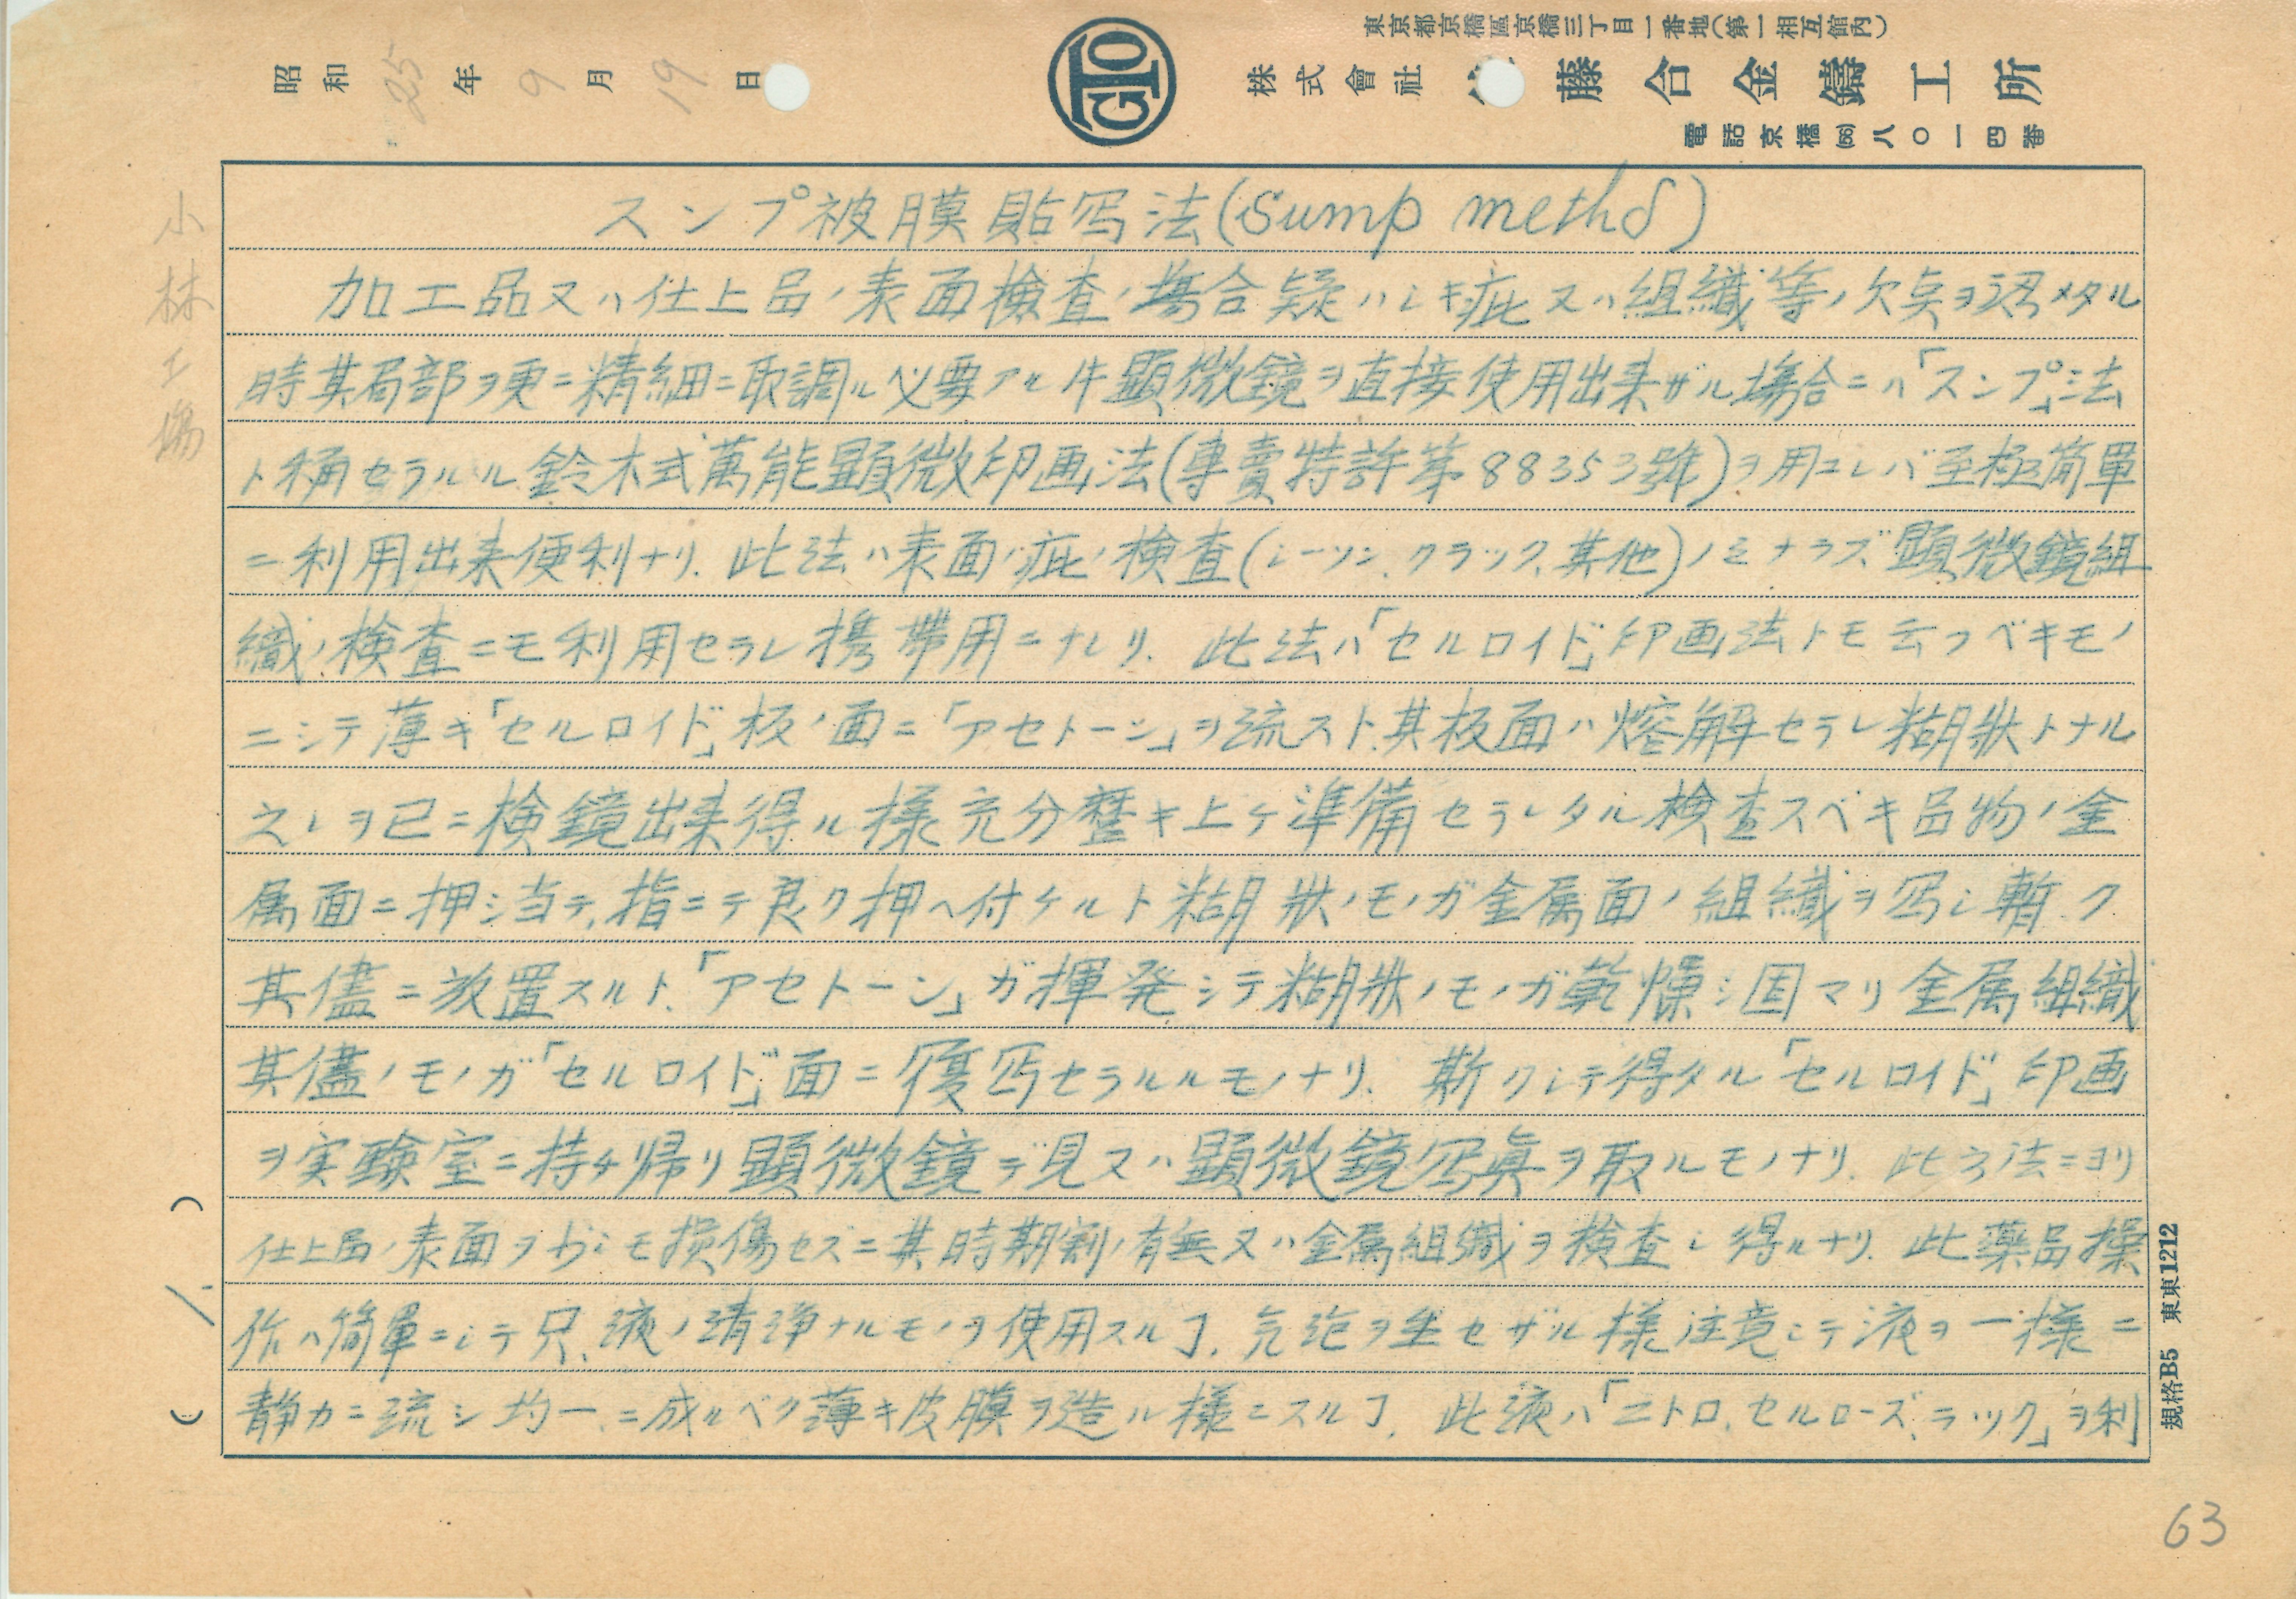 東京都京橋區京橋三丁目一番地(第一相互館内)
昭和25年9月19日
株式會社 藤合金鑄工所
電話京橋(56)八〇一四番
GTO
小林工場
スンプ被膜貼写法(Sump methd)
加工品又ハ仕上品ノ表面検査ノ場合疑ハシキ疵又ハ組織等ノ欠点ヲ認メタル
時其局部ヲ更ニ精細ニ取調ル必要アル件顕微鏡ヲ直接使用出来ザル場合ニハ「スンプ」法
ト称セラルル鈴木式萬能顕微印画法(專賣特許第88353號)ヲ用ユレバ至極簡單
ニ利用出来便利ナリ. 此法ハ表面ノ疵ノ検査(シーツン、クラック、其他)ノミナラズ顕微鏡組
織ノ検査ニモ利用セラレ携帯用ニナレリ. 此法ハ「セルロイド」印画法トモ云フベキモノ
ニシテ薄キ「セルロイド」板ノ面ニ「アセトーン」ヲ流スト、其板面ハ熔解セラレ糊狀トナル
之レヲ已ニ検鏡出来得ル様充分磨キ上ケ準備セラレタル検査スベキ品物ノ金
属面ニ押シ当テ、指ニテ良ク押ヘ付ケルト糊狀ノモノガ金属面ノ組織ヲ写シ暫ク
其儘ニ放置スルト、「アセトーン」ガ揮発シテ糊狀ノモノガ乾燥シ固マリ金属組織
其儘ノモノガ「セルロイド」面ニ復写セラルルモノナリ. 斯クシテ得タル「セルロイド」印画
ヲ実験室ニ持チ帰リ顕微鏡デ見又ハ顕微鏡写眞ヲ取ルモノナリ. 此方法ニヨリ
仕上品ノ表面ヲ少シモ損傷セズニ其時期割ノ有無又ハ金属組織ヲ検査シ得ルナリ. 此薬品操
作ハ簡單ニシテ只、液ノ清浄ナルモノヲ使用スルコト. 気泡ヲ生セザル様注意シテ液ヲ一様ニ
静カニ流シ均一ニ成ルベク薄キ皮膜ヲ造ル様ニスルコト. 此液ハ「ニトロ、セルローズ、ラック」ヲ利
( 1. )
規格B5 東東1212
63